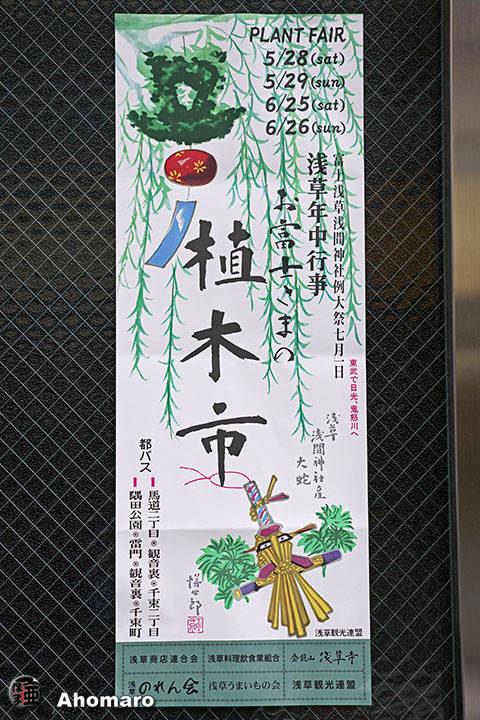 PLANT FAIR
5/28(sat)
5/29(sun)
6/25(sat)
6/26(sun)
富士浅草浅間神社例大祭七月一日
浅草年中行事
お富士さまの
植木市
東武で日光、鬼怒川へ
浅草
浅間神社産
大蛇
都バス
馬道二丁目◉観音裏◉千束二丁目
隅田公園◉雷門◉観音裏◉千束町
浅草観光連盟
浅草商店連合会
浅草料理飲食業組合
金龍山 浅草寺
浅草のれん会
浅草うまいもの会
浅草観光連盟
Ahomaro